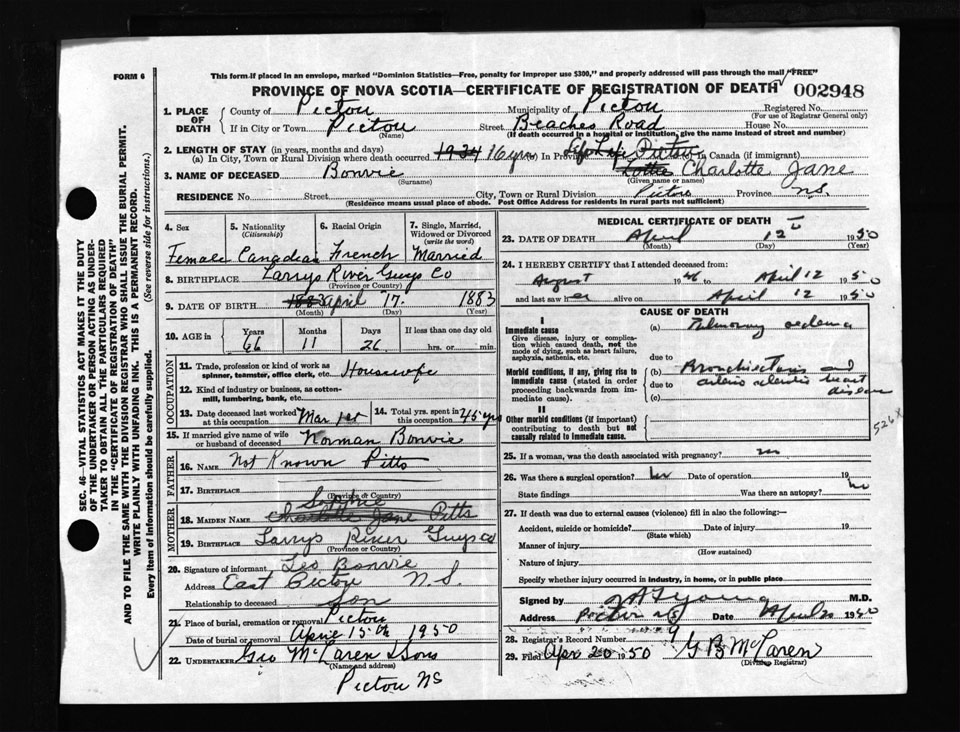 FORM 6
This form if placed in an envelope, marked "Dominion Statistics—Free, penalty for improper use $300," and properly addressed will pass through the mail "FREE"
PROVINCE OF NOVA SCOTIA—CERTIFICATE OF REGISTRATION OF DEATH 002948
1. PLACE OF DEATH
County of Pictou Municipality of Pictou Registered No.
(For use of Registrar General only)
If in City or Town Pictou Street Beaches Road House No.
(Name) (If death occurred in a hospital or institution, give the name instead of street and number)
2. LENGTH OF STAY (in years, months and days)
(a) In City, Town or Rural Division where death occurred 1934 16 yrs (b) In Province Life (c) In Canada (if immigrant)
3. NAME OF DECEASED Bonvie Lottie Charlotte Jane
(Surname) (Given name or names)
RESIDENCE No. Street City, Town or Rural Division Pictou Province N.S.
(Residence means usual place of abode. Post Office Address for residents in rural parts not sufficient)
4. Sex 5. Nationality (Citizenship) 6. Racial Origin 7. Single, Married, Widowed or Divorced (write the word)
Female Canadian French Married
8. BIRTHPLACE Larrys River Guys Co
(Province or Country)
9. DATE OF BIRTH 1883 April 17. 1883
(Month) (Day) (Year)
10. AGE in Years Months Days If less than one day old
66 11 26 hrs. or min.
OCCUPATION
11. Trade, profession or kind of work as spinner, teamster, office clerk, etc. Housewife
12. Kind of industry or business, as cotton-mill, lumbering, bank, etc.
13. Date deceased last worked at this occupation Mar 1st 14. Total yrs. spent in this occupation 45 yrs
15. If married give name of wife or husband of deceased Norman Bonvie
FATHER
16. Name Not Known Pitts
17. Birthplace
(Province or Country)
MOTHER
Sophie
18. Maiden Name Charlotte Jane Pitts
19. Birthplace Larrys River Guys Co
(Province or Country)
20. Signature of informant Leo Bonvie
Address East Pictou N.S.
Relationship to deceased Son
21. Place of burial, cremation or removal Pictou
Date of burial or removal April 15th 1950
22. UNDERTAKER Geo McLaren & Sons
(Name and address)
Pictou NS
MEDICAL CERTIFICATE OF DEATH
23. DATE OF DEATH April 12 1950
(Month) (Day) (Year)
24. I HEREBY CERTIFY that I attended deceased from:
August 1946 April 12 1950
and last saw her alive on April 12 1950
CAUSE OF DEATH
I
Immediate cause
Give disease, injury or complication which caused death, not the mode of dying, such as heart failure, asphyxia, asthenia, etc.
(a) Pulmonary oedema
due to
Morbid conditions, if any, giving rise to immediate cause (stated in order proceeding backwards from immediate cause).
(b) Bronchiectasis and
due to arterio sclerotic heart disease
(c)
526 X
II
Other morbid conditions (if important) contributing to death but not causally related to immediate cause.
25. If a woman, was the death associated with pregnancy? no
26. Was there a surgical operation? no Date of operation 19
State findings Was there an autopsy? no
27. If death was due to external causes (violence) fill in also the following:—
Accident, suicide or homicide? Date of injury 19
(State which)
Manner of injury
(How sustained)
Nature of injury
Specify whether injury occurred in industry, in home, or in public place
Signed by Young M.D.
Address Pictou NS Date April 20 1950
28. Registrar's Record Number 9
29. Filed Apr 20 1950 G B McLaren
(Division Registrar)
SEC. 46—VITAL STATISTICS ACT MAKES IT THE DUTY
OF THE UNDERTAKER OR PERSON ACTING AS UNDER-
TAKER TO OBTAIN ALL THE PARTICULARS REQUIRED
IN THE "CERTIFICATE OF REGISTRATION OF DEATH"
AND TO FILE THE SAME WITH THE DIVISION REGISTRAR WHO SHALL ISSUE THE BURIAL PERMIT.
WRITE PLAINLY WITH UNFADING INK. THIS IS A PERMANENT RECORD.
Every item of information should be carefully supplied. (See reverse side for instructions.)